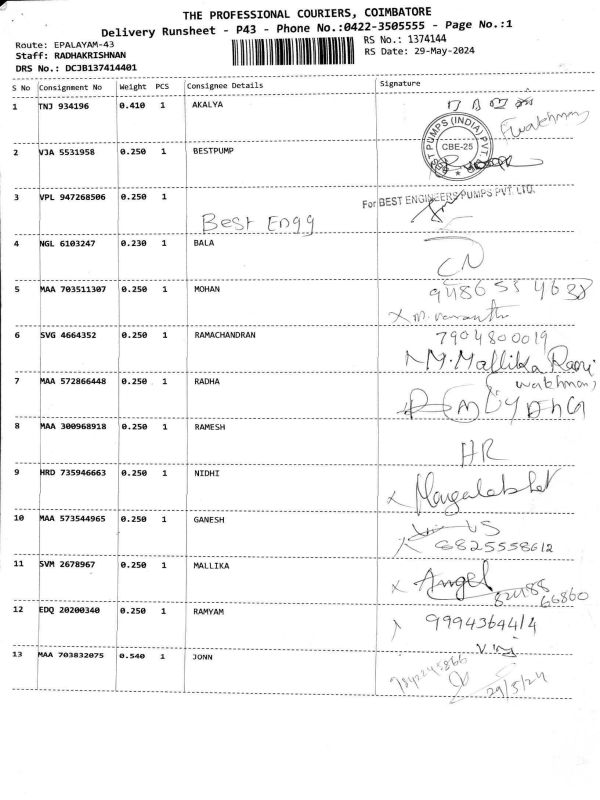 THE PROFESSIONAL COURIERS, COIMBATORE
Delivery Runsheet - P43 - Phone No.:0422-3505555 - Page No.:1
Route: EPALAYAM-43
RS No.: 1374144
Staff: RADHAKRISHNAN
RS Date: 29-May-2024
DRS No.: DCJB137414401
S No Consignment No Weight PCS Consignee Details Signature
1 TNJ 934196 0.410 1 AKALYA
BEST PUMPS (INDIA) PVT.
CBE-25
2 VJA 5531958 0.250 1 BESTPUMP
3 VPL 947268506 0.250 1
For BEST ENGINEERS PUMPS PVT. LTD.
Best Engg
4 NGL 6103247 0.230 1 BALA
CN
5 MAA 703511307 0.250 1 MOHAN
6 SVG 4664352 0.250 1 RAMACHANDRAN
7904800019
M. Mallika Rani
7 MAA 572866448 0.250 1 RADHA
8 MAA 300968918 0.250 1 RAMESH
HR
9 HRD 735946663 0.250 1 NIDHI
10 MAA 573544965 0.250 1 GANESH
11 SVM 2678967 0.250 1 MALLIKA
Angel
12 EDQ 20200340 0.250 1 RAMYAM
13 MAA 703832075 0.540 1 JONN
29/5/24